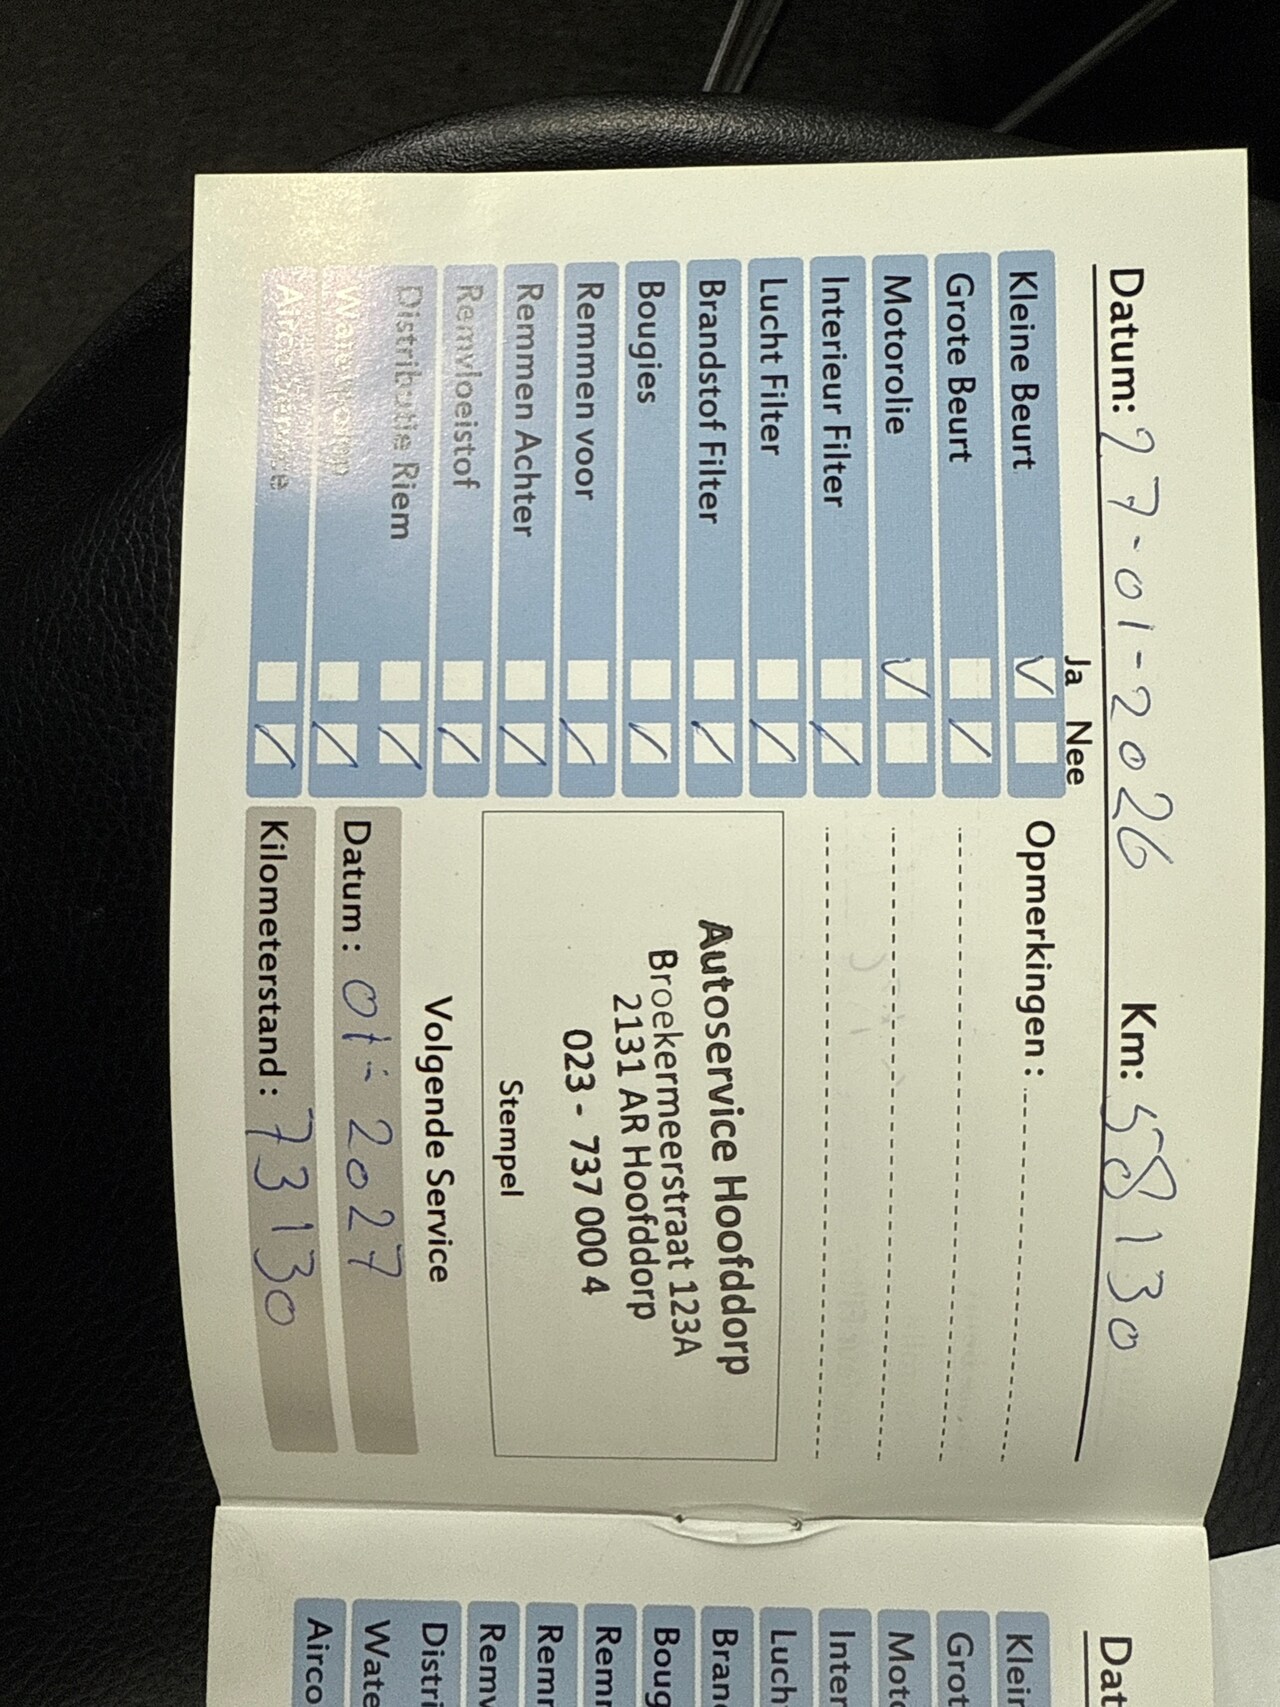 Datum: 27-01-2026 Km: 58130
Ja Nee
Kleine Beurt
Grote Beurt
Motorolie
Interieur Filter
Lucht Filter
Brandstof Filter
Bougies
Remmen voor
Remmen Achter
Remvloeistof
Distributie Riem
Airco
Opmerkingen :
Autoservice Hoofddorp
Broekermeerstraat 123A
2131 AR Hoofddorp
023 - 737 000 4
Stempel
Volgende Service
Datum : 01-2027
Kilometerstand : 73130
Dat
Klein
Grot
Moto
Inter
Luch
Bran
Boug
Remr
Remr
Remv
Distri
Wate
Airco